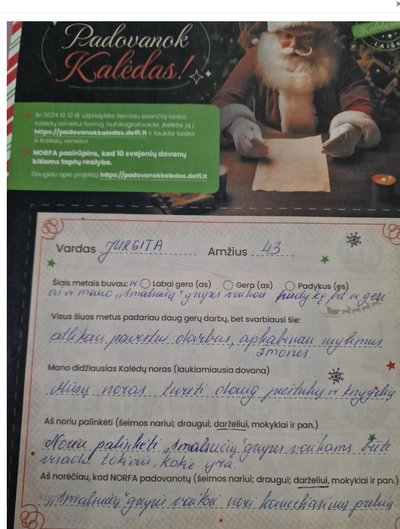 Padovanok
Kalėdas!
Iki 2024 12 12 d. užpildykite žemiau esančią laišką
Kalėdų seneliui formą, nufotografuokite, įkelkite ją į
https://padovanokkaledas.delfi.lt ir laukite laiško
iš Kalėdų senelio!
NORFA pasirūpins, kad 10 svajonių dovanų
kitiems taptų realybe.
Daugiau apie projektą https://padovanokkaledas.delfi.lt
Vardas JURGITA Amžius 43
Šiais metais buvau: Labai gera (as) Gera (as) Padykus (ęs)
ir mano „Smalsučių" grupės vaikai ir geri
Visus šiuos metus padariau daug gerų darbų, bet svarbiausi šie:
atlikau pavestus darbus, apkabinau mylimus
žmones
Mano didžiausias Kalėdų noras (laukiamiausia dovana)
Mūsų noras turėti daug pieštukų ir knygelių
Aš noriu palinkėti (šeimos nariui; draugui; darželiui, mokyklai ir pan.)
Noriu palinkėti „Smalsučių" grupės vaikams būti
visada tokiais, kokie yra.
Aš norėčiau, kad NORFA padovanotų (šeimos nariui; draugui; darželiui, mokyklai ir pan.)
„Smalsučių" grupės vaikai nori